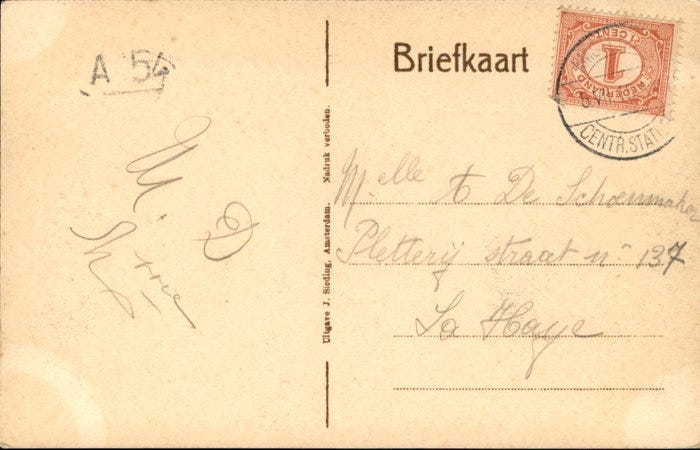 A 54
Briefkaart
1
1 CENT
NEDERLAND
CENTR. STATI
M.
D
Uitgave J. Sleding, Amsterdam. Nadruk verboden.
M.elle A De Schoenmaker
Pletterij straat n° 137
La Haye